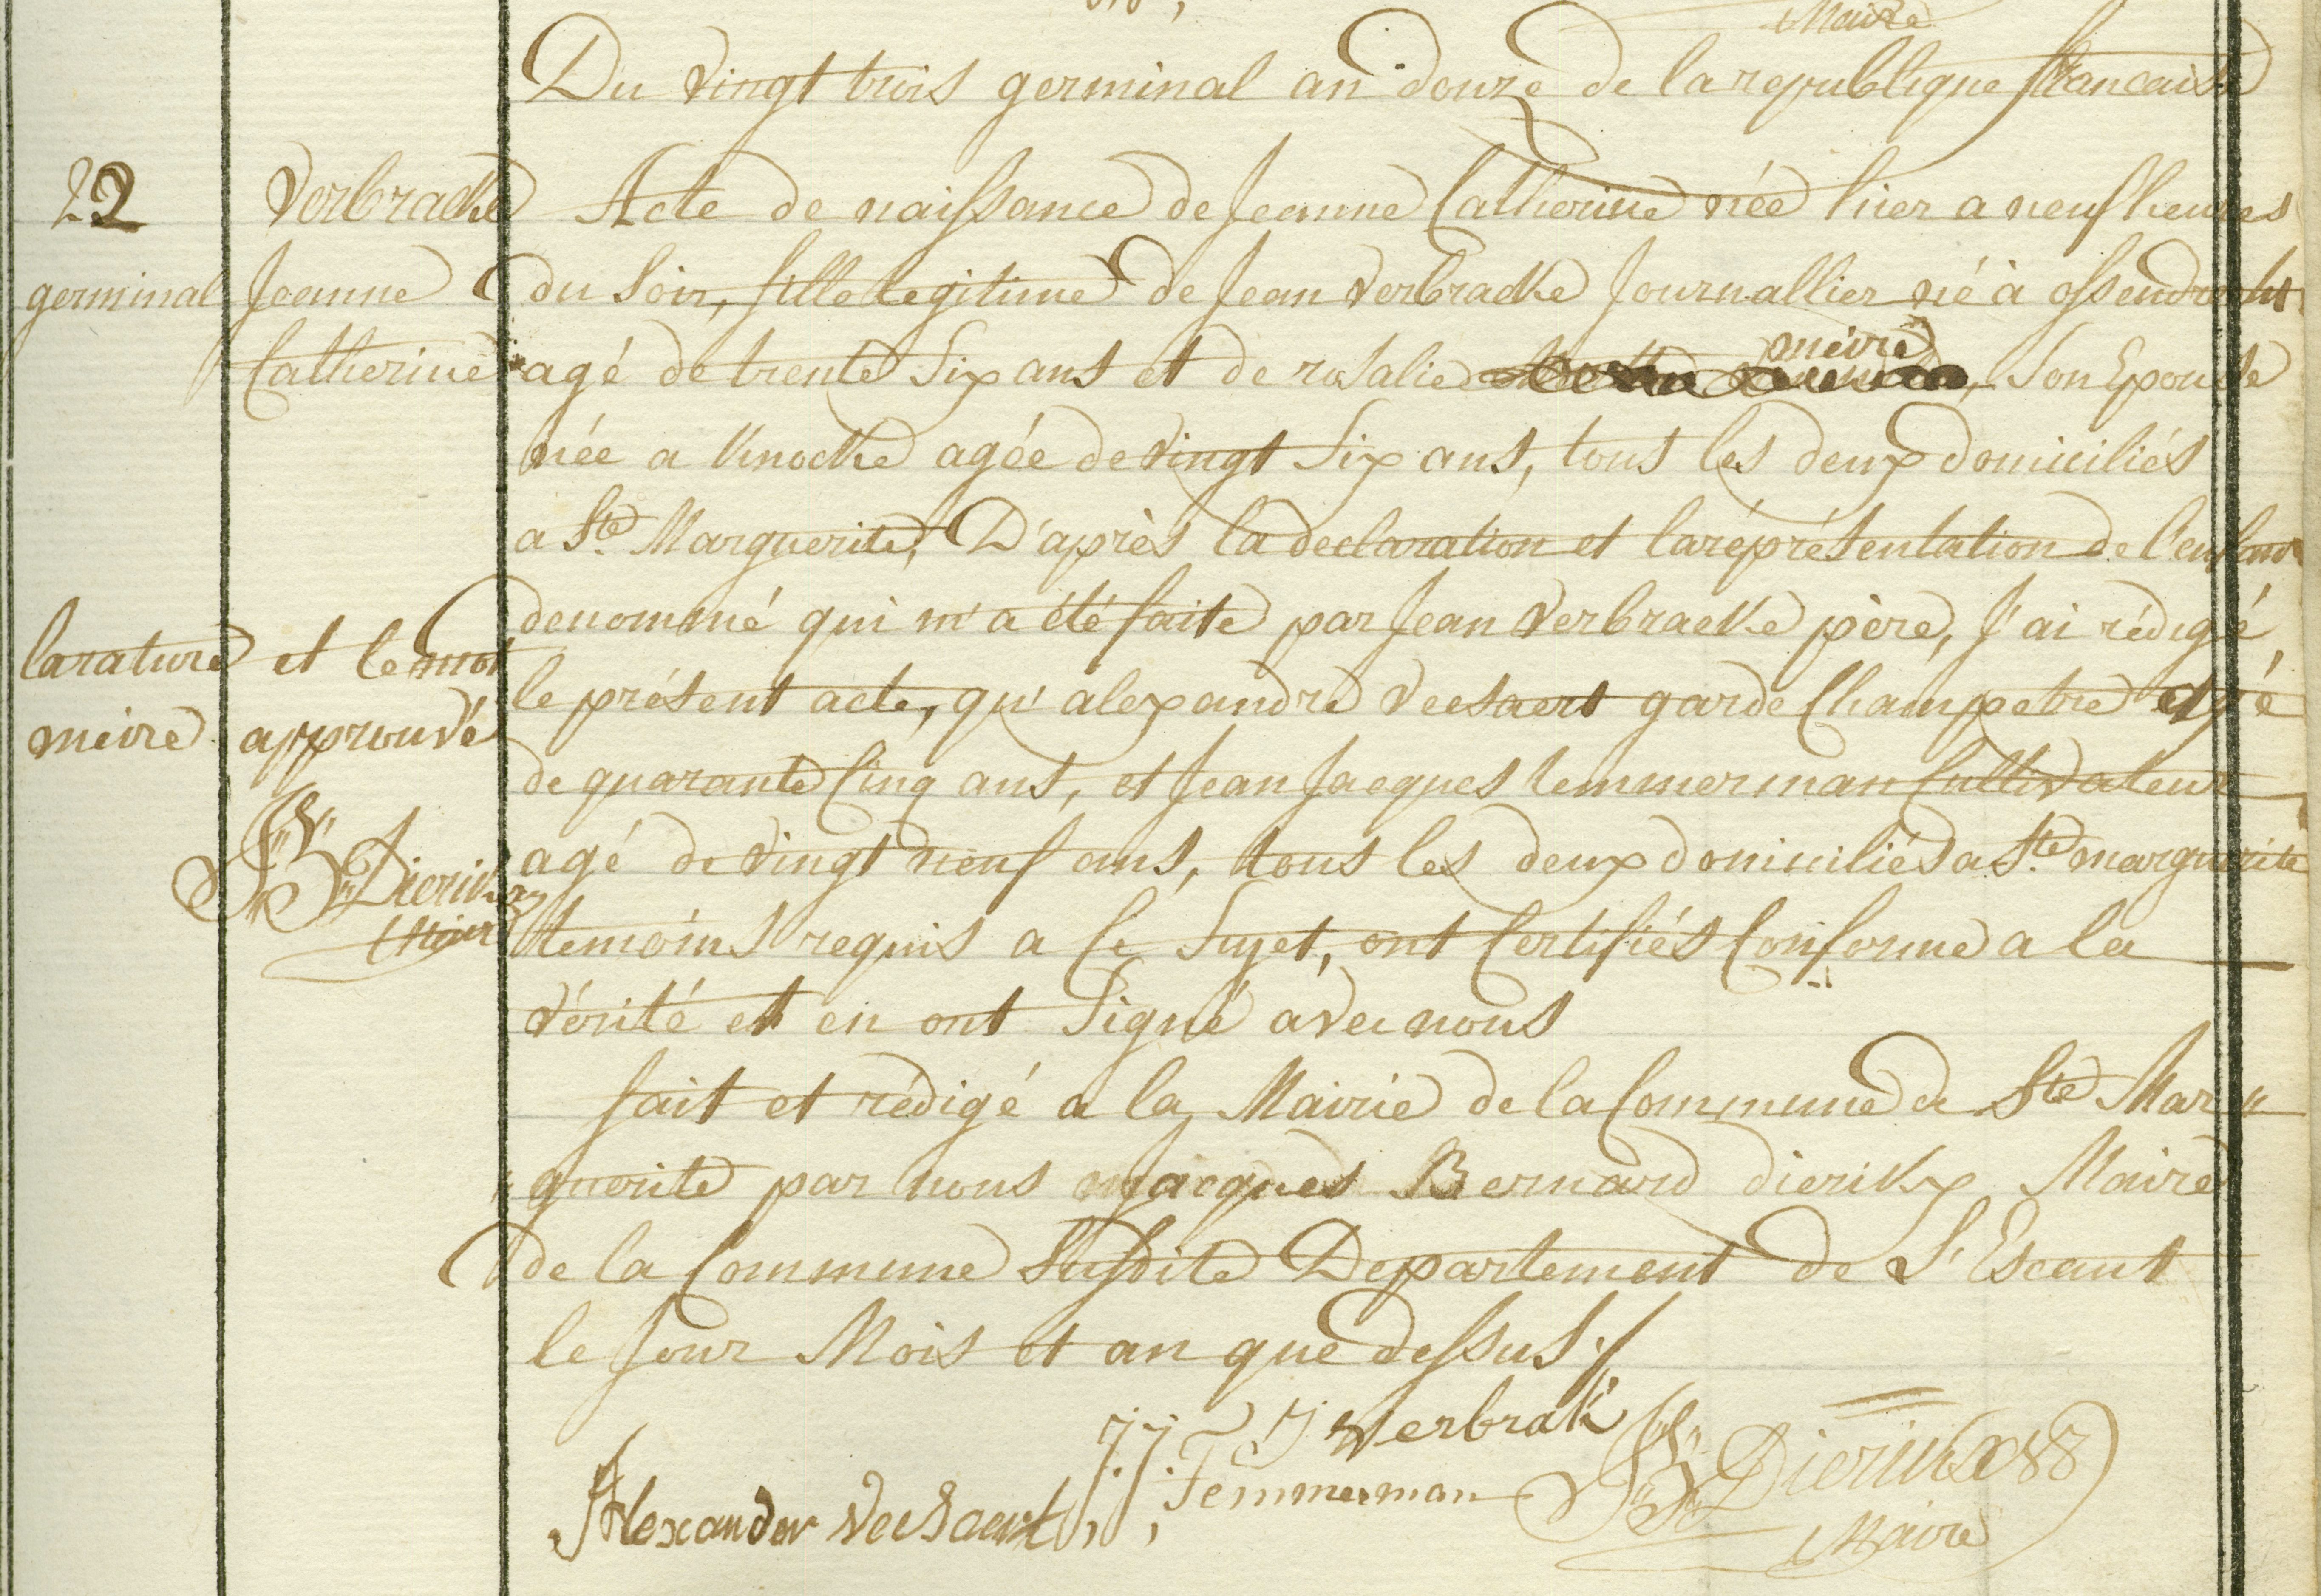 Maire
Du vingt trois germinal an douze de la republique francaise
22 Verbracke Acte de naissance de Jeanne Catherine née hier a neuf heures
germinal Jeanne du Soir, fille legitime de Jean Verbracke Journallier né à ossendrecht
Catherine agé de trente Six ans et de rosalie meire, Son Epouse
née a Knocke agée de vingt Six ans, tous les deux domiciliés
a Ste Marguerite, D'après la declaration et la réprésentation de l'enfant
denommé qui m'a été faite par Jean Verbracke père, J'ai rédigé
la rature et le mot
le présent acte, qu'alexandre Veesaert garde Champetre agé
meire approuvé
de quarante Cinq ans, et Jean Jacques temmerman Cultivateur
JB Dierikx
agé de vingt neuf ans, tous les deux domiciliés a Ste marguerite
Maire
temoins requis a Ce Sujet, ont Certifiés Conforme a la
vérité et en ont Signé avec nous
fait et rédigé a la Mairie de la Commune de Ste Mar"
"guerite par nous Jacques Bernard dierikx Maire
de la Commune Susdite Departement de L'Escaut
le Jour Mois et an que dessus ./
J Verbrak
Alexander Veesaert J:J: Temmerman JB Dierikx
Maire